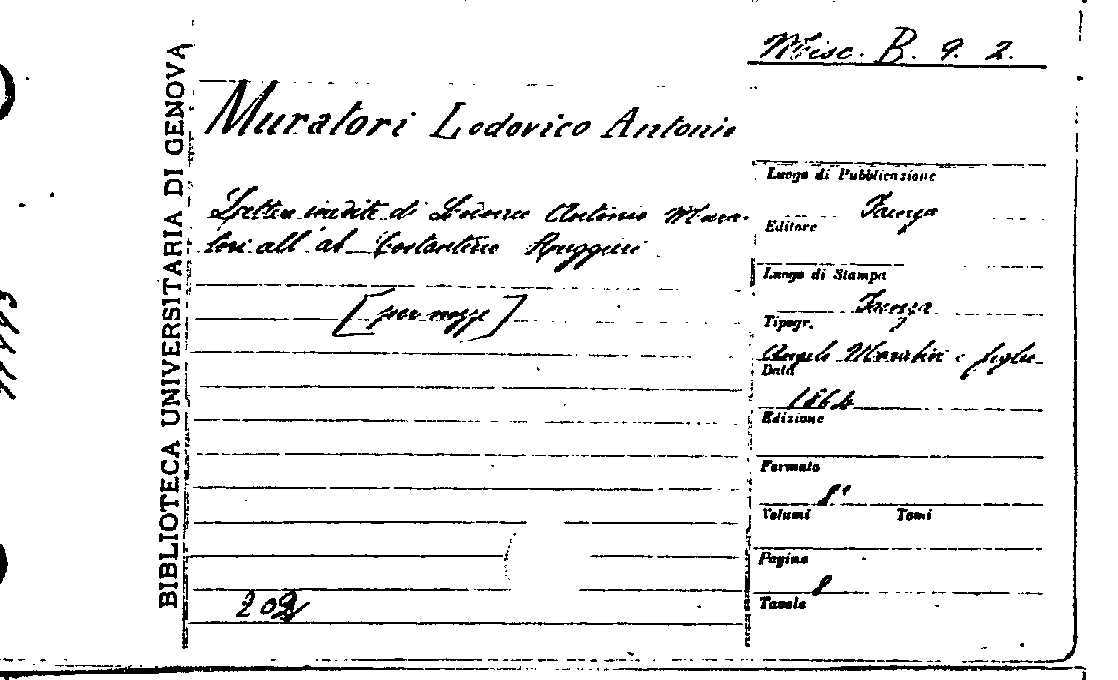 BIBLIOTECA UNIVERSITARIA DI GENOVA
Misc. B. 9. 2.
Muratori Lodovico Antonio
Lettere inedite di Antonio Mura-
tori all'ab. Costantino Ruggieri
[per nozze]
202
Luogo di Pubblicazione
Faenza
Editore
Luogo di Stampa
Faenza
Tipogr.
Angelo Marabini e figlio
Data
1864
Edizione
Formato
8°
Volumi Tomi
Pagine
8
Tavole